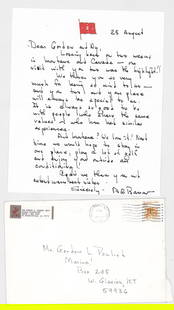 25 August
Dear Gordon and
Looking back on two weeks
in Montana and Canada — our
visit with you two was the highlight!
We thank you so very
much for being so kind to us —
and you two and your place
will always be special to us.
It is always so good to be
with people who share the same
values and who have had similar
experiences.
And Montana? We love it! Next
time we would hope to stay in
one place, play a lot of golf
and enjoy your outside air
conditioning!
Again we thank you and
extend warmest wishes.
Sincerely,
Mr. Gordon L.
Box 205
W. Glacier, MT
59936